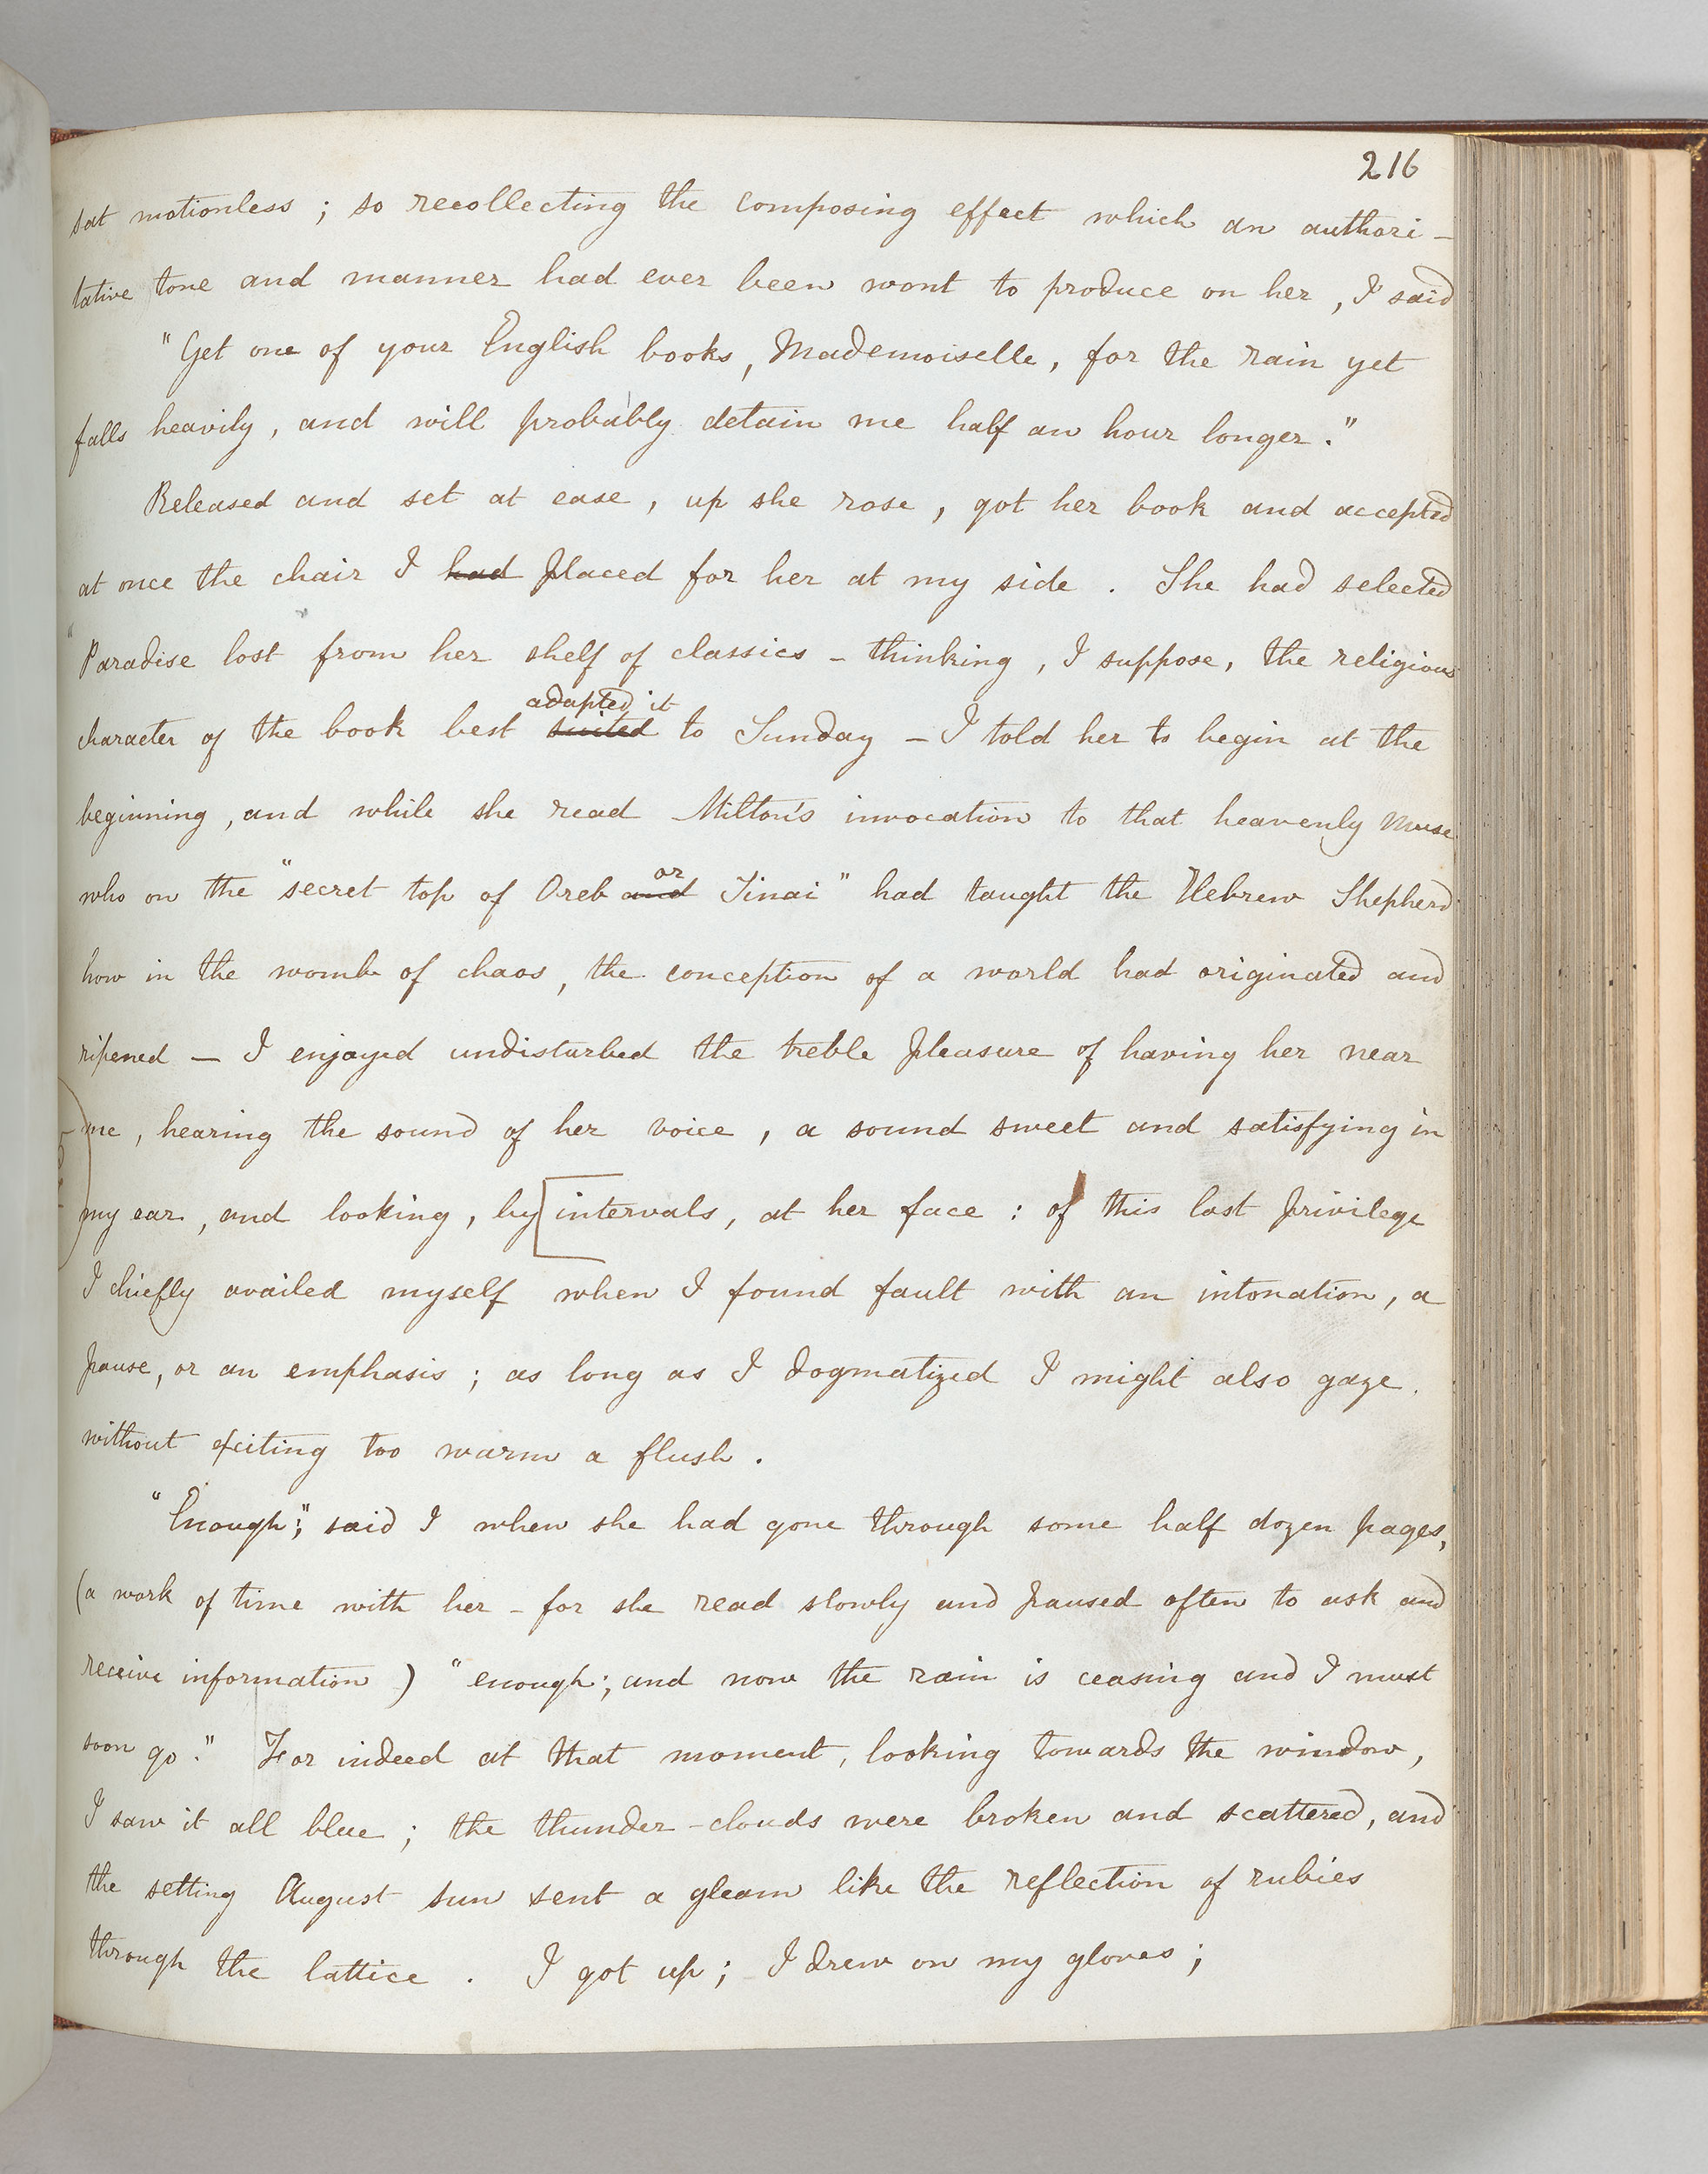 216
sat motionless ; so recollecting the composing effect which an authori-
tative tone and manner had ever been wont to produce on her , I said
"Get one of your English books, Mademoiselle, for the rain yet
falls heavily, and will probably detain me half an hour longer."
Released and set at ease , up she rose , got her book and accepted
at once the chair I had placed for her at my side . She had selected
"Paradise lost from her shelf of classics - thinking, I suppose, the religious
adapted it
character of the book best suited to Sunday - I told her to begin at the
beginning, and while she read Milton's invocation to that heavenly Muse
or
who on the "secret top of Oreb and Sinai" had taught the Hebrew Shepherd
how in the womb of chaos, the conception of a world had originated and
ripened — I enjoyed undisturbed the treble pleasure of having her near
me, hearing the sound of her voice, a sound sweet and satisfying in
my ear, and looking, by [intervals, at her face : of this last privilege
I chiefly availed myself when I found fault with an intonation, a
pause, or an emphasis ; as long as I dogmatized I might also gaze.
without exciting too warm a flush .
"Enough;" said I when she had gone through some half dozen pages,
(a work of time with her - for she read slowly and paused often to ask and
receive information ) "enough; and now the rain is ceasing and I must
soon go." For indeed at that moment, looking towards the window,
I saw it all blue ; the thunder-clouds were broken and scattered, and
the setting August sun sent a gleam like the reflection of rubies
through the lattice . I got up; I drew on my gloves ;